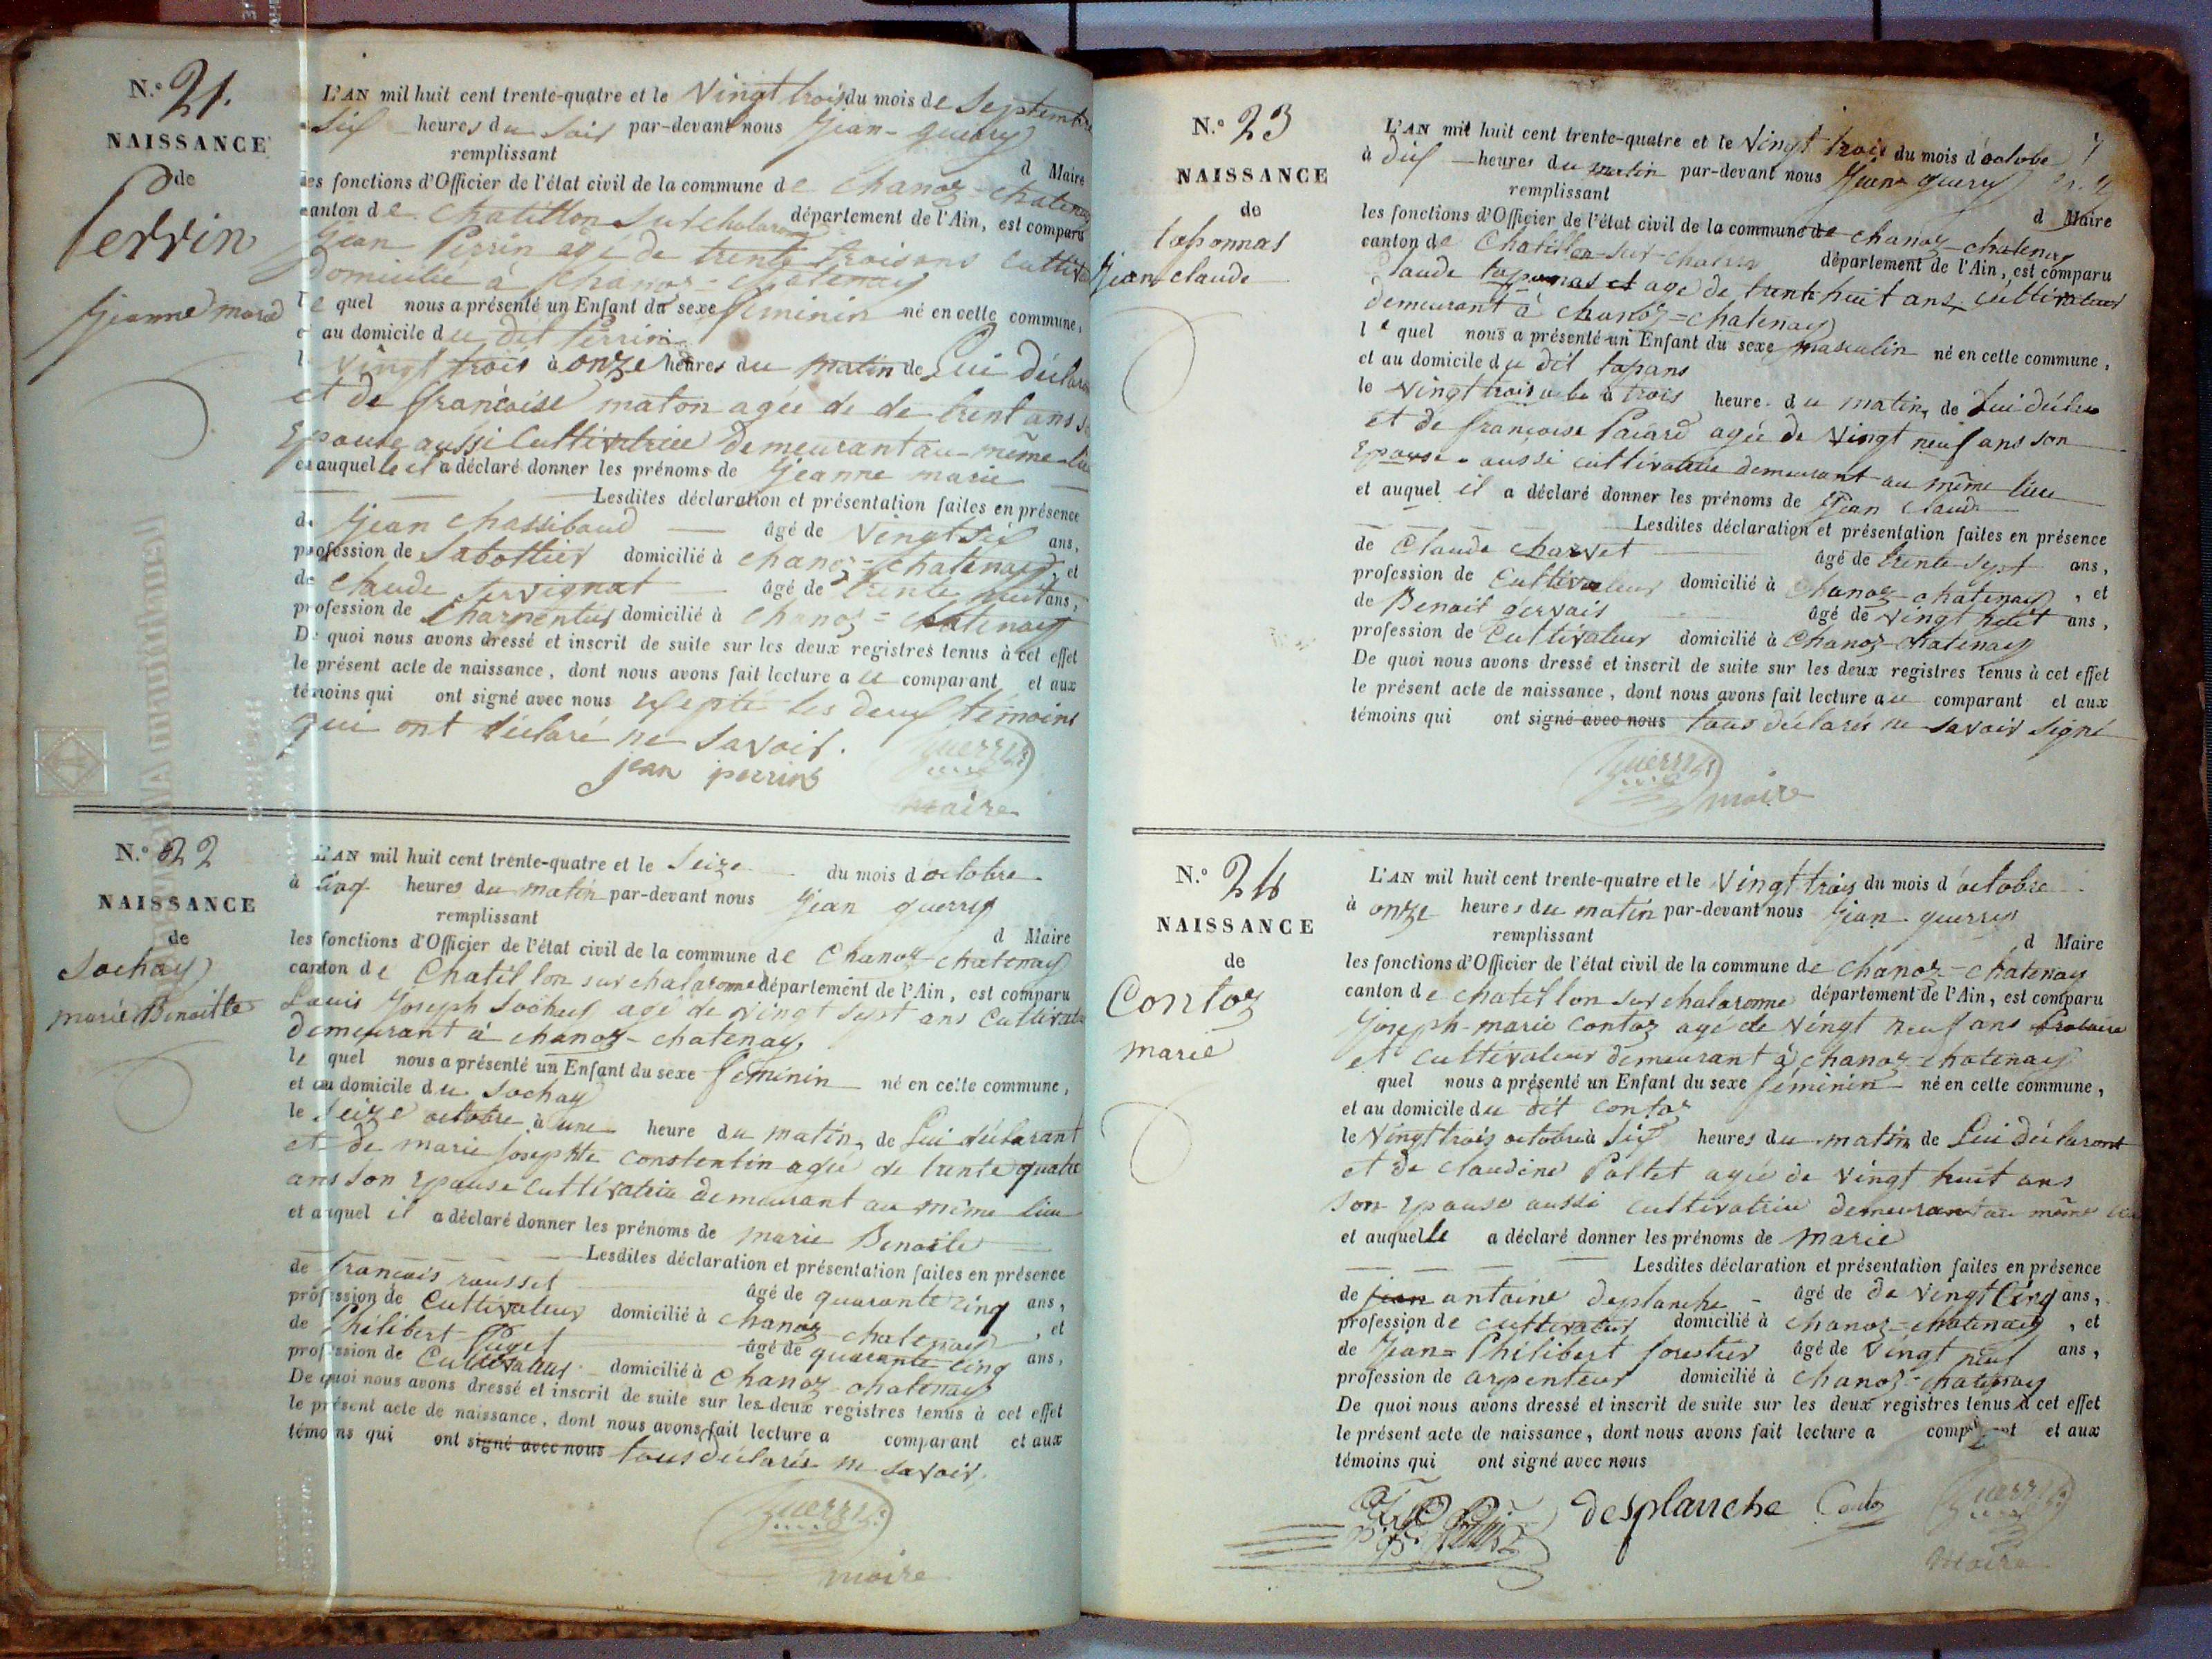 N.° 21.
NAISSANCE
de
Perrin
Jeanne marie
L'AN mil huit cent trente-quatre et le Vingt trois du mois de Septembre
Six heures du Soir par-devant nous Jean-guerry
remplissant d Maire
les fonctions d'Officier de l'état civil de la commune de Chanoz-chatenay
canton de Chatillon sur chalaronne département de l'Ain, est comparu
Jean Perrin agé de trente trois ans cultiv
domicilié à Chanoz-chatenay
le quel nous a présenté un Enfant du sexe feminin né en cette commune,
et au domicile du dit Perrin
l Vingt trois à onze heures du matin de Lui déclara
et de françoise maton agée de de trent ans s
Epouse aussi Cultivatrice demeurant au même lie
et auquelle il a déclaré donner les prénoms de Jeanne marie
Lesdites déclaration et présentation faites en présence
de Jean chassibaud âgé de Vingt Six ans,
profession de Sabottier domicilié à chanoz-chatenay, et
de Claude servignat âgé de trente huit ans,
profession de Charpentier domicilié à Chanoz=chatenay
De quoi nous avons dressé et inscrit de suite sur les deux registres tenus à cet effet
le présent acte de naissance, dont nous avons fait lecture a u comparant et aux
témoins qui ont signé avec nous Exepté les deux témoins
qui ont déclaré ne Savoir.
jean perrin
guerry
maire
N.° 22
NAISSANCE
de
Sochay
marie Benoitte
L'AN mil huit cent trente-quatre et le Seize du mois d octobre
à Cinq heures du matin par-devant nous Jean guerry
remplissant d Maire
les fonctions d'Officier de l'état civil de la commune de Chanoz-chatenay
canton de Chatillon sur chalaronne département de l'Ain, est comparu
Louis Joseph Sochay agé de Vingt Sept ans Cultivat
demeurant à chanoz-chatenay
le quel nous a présenté un Enfant du sexe feminin né en cette commune,
et au domicile du Sochay
le Seize octobre à une heure du matin, de Lui déclarant
et de marie Josephte constentin agée de trente quatre
ans Son Epouse cultivatrice demeurant au même lieu
et auquel il a déclaré donner les prénoms de marie Benoite
Lesdites déclaration et présentation faites en présence
de francois rousset âgé de quarante cinq ans,
profession de Cultivateur domicilié à chanoz-chatenay, et
de Philibert Puget âgé de quarante cinq ans,
profession de Cultivateur domicilié à chanoz-chatenay
De quoi nous avons dressé et inscrit de suite sur les deux registres tenus à cet effet
le présent acte de naissance, dont nous avons fait lecture a comparant et aux
témoins qui ont signé avec nous tous déclarés ne savoir.
guerry
maire
N.° 23
NAISSANCE
de
taponnas
Jean claude
L'AN mil huit cent trente-quatre et le Vingt trois du mois d'octobre
à dix heures du matin par-devant nous Jean guerry
remplissant d Maire
les fonctions d'Officier de l'état civil de la commune de chanoz-chatenay
canton de Chatillon-sur-chalar département de l'Ain, est comparu
laude taponas et agé de trente huit ans, cultivateur
demeurant à chanoz=chatenay
l e quel nous a présenté un Enfant du sexe masculin né en cette commune,
et au domicile du dit tapans
le Vingt trois octo à trois heure. du matin, de Lui déclar
et de françoise Pacard agée de Vingt neuf ans son
Epouse aussi cultivatrice demeurant au même lieu
et auquel il a déclaré donner les prénoms de Jean Claude
Lesdites déclaration et présentation faites en présence
de Claude charvet âgé de trente Sept ans,
profession de Cultivateur domicilié à chanoz-chatenay, et
de Benoit gervais âgé de vingt huit ans,
profession de Cultivateur domicilié à Chanoz-chatenay
De quoi nous avons dressé et inscrit de suite sur les deux registres tenus à cet effet
le présent acte de naissance, dont nous avons fait lecture a u comparant et aux
témoins qui ont signé avec nous tous déclarés ne savoir signé
guerry
maire
N.° 24
NAISSANCE
de
Contoz
marie
L'AN mil huit cent trente-quatre et le Vingt trois du mois d'octobre
à onze heures du matin par-devant nous Jean-guerry
remplissant d Maire
les fonctions d'Officier de l'état civil de la commune de chanoz-chatenay
canton de chatillon sur chalaronne département de l'Ain, est comparu
Joseph-marie contoz agé de Vingt neuf ans
et cultivateur demeurant à chanoz-chatenay
quel nous a présenté un Enfant du sexe feminin né en cette commune,
et au domicile du dit contoz
le Vingt trois octobre à Six heures du matin de Lui déclarant
et de claudine Paltet agée de Vingt huit ans
Son Epouse aussi cultivatrice demeurant au même
et auquelle a déclaré donner les prénoms de marie
Lesdites déclaration et présentation faites en présence
de jean antoine deplanche âgé de de Vingt Cinq ans,
profession de cultivateur domicilié à chanoz-chatenay, et
de Jean=Philibert forestier âgé de Vingt neuf ans,
profession de arpenteur domicilié à Chanoz-chatenay
De quoi nous avons dressé et inscrit de suite sur les deux registres tenus à cet effet
le présent acte de naissance, dont nous avons fait lecture a comparant et aux
témoins qui ont signé avec nous
desplanche Contoz guerry
maire